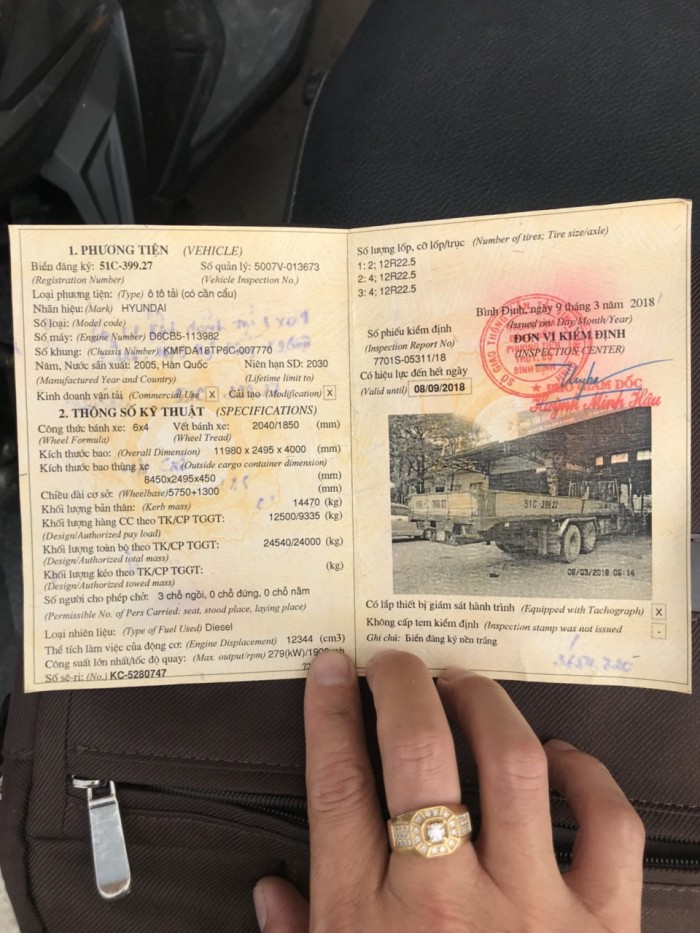 1. PHƯƠNG TIỆN (VEHICLE)
Biển đăng ký: 51C-399.27 Số quản lý: 5007V-013673
(Registration Number) (Vehicle Inspection No.)
Loại phương tiện: (Type) ô tô tải (có cần cẩu)
Nhãn hiệu: (Mark) HYUNDAI
Số loại: (Model code)
Số máy: (Engine Number) D6CB5-113982
Số khung: (Chassis Number) KMFDA18TP6C-007770
Năm, Nước sản xuất: 2005, Hàn Quốc Niên hạn SD: 2030
(Manufactured Year and Country) (Lifetime limit to)
Kinh doanh vận tải (Commercial Use) X Cải tạo (Modification) X
2. THÔNG SỐ KỸ THUẬT (SPECIFICATIONS)
Công thức bánh xe: 6x4 Vết bánh xe: 2040/1850 (mm)
(Wheel Formula) (Wheel Tread)
Kích thước bao: (Overall Dimension) 11980 x 2495 x 4000 (mm)
Kích thước bao thùng xe (Outside cargo container dimension)
8450x2495x450 (mm)
Chiều dài cơ sở: (Wheelbase) 5750+1300 (mm)
Khối lượng bản thân: (Kerb mass) 14470 (kg)
Khối lượng hàng CC theo TK/CP TGGT: 12500/9335 (kg)
(Design/Authorized pay load)
Khối lượng toàn bộ theo TK/CP TGGT: 24540/24000 (kg)
(Design/Authorized total mass)
Khối lượng kéo theo TK/CP TGGT: (kg)
(Design/Authorized towed mass)
Số người cho phép chở: 3 chỗ ngồi, 0 chỗ đứng, 0 chỗ nằm
(Permissible No. of Pers Carried: seat, stood place, laying place)
Loại nhiên liệu: (Type of Fuel Used) Diesel
Thể tích làm việc của động cơ: (Engine Displacement) 12344 (cm3)
Công suất lớn nhất/tốc độ quay: (Max. output/rpm) 279(kW)/
Số sê-ri: (No.) KC-5280747
Số lượng lốp, cỡ lốp/trục (Number of tires; Tire size/axle)
1: 2; 12R22.5
2: 4; 12R22.5
3: 4; 12R22.5
Bình Định, ngày 9 tháng 3 năm 2018
(Issued on: Day/Month/Year)
Số phiếu kiểm định ĐƠN VỊ KIỂM ĐỊNH
(Inspection Report No) (INSPECTION CENTER)
7701S-05311/18
Có hiệu lực đến hết ngày
(Valid until) 08/09/2018
PHÓ GIÁM ĐỐC
Huỳnh Minh Hậu
51C-399.27
09/03/2018 08:14
Có lắp thiết bị giám sát hành trình (Equipped with Tachograph) X
Không cấp tem kiểm định (Inspection stamp was not issued) -
Ghi chú: biển đăng ký nền trắng